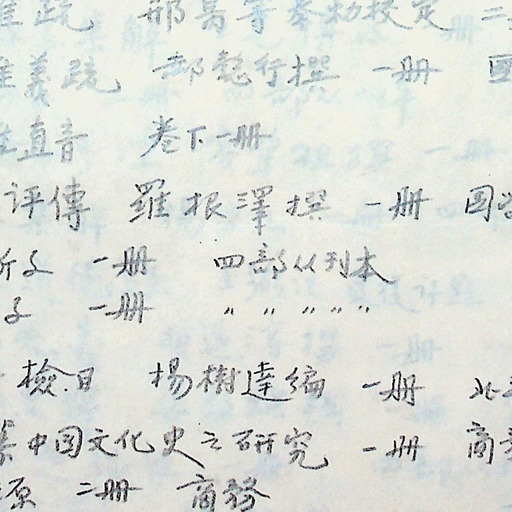 疏 邢昺等奉勅校定 二
義疏 郝懿行撰 一册
直音 卷下一册
評傳 羅根澤撰 一册 国学
子 一册 四部丛刊本
子 一册 〃〃〃〃〃
檢目 楊樹達編 一册 北
中国文化史之研究 一册 商務
源 二册 商務